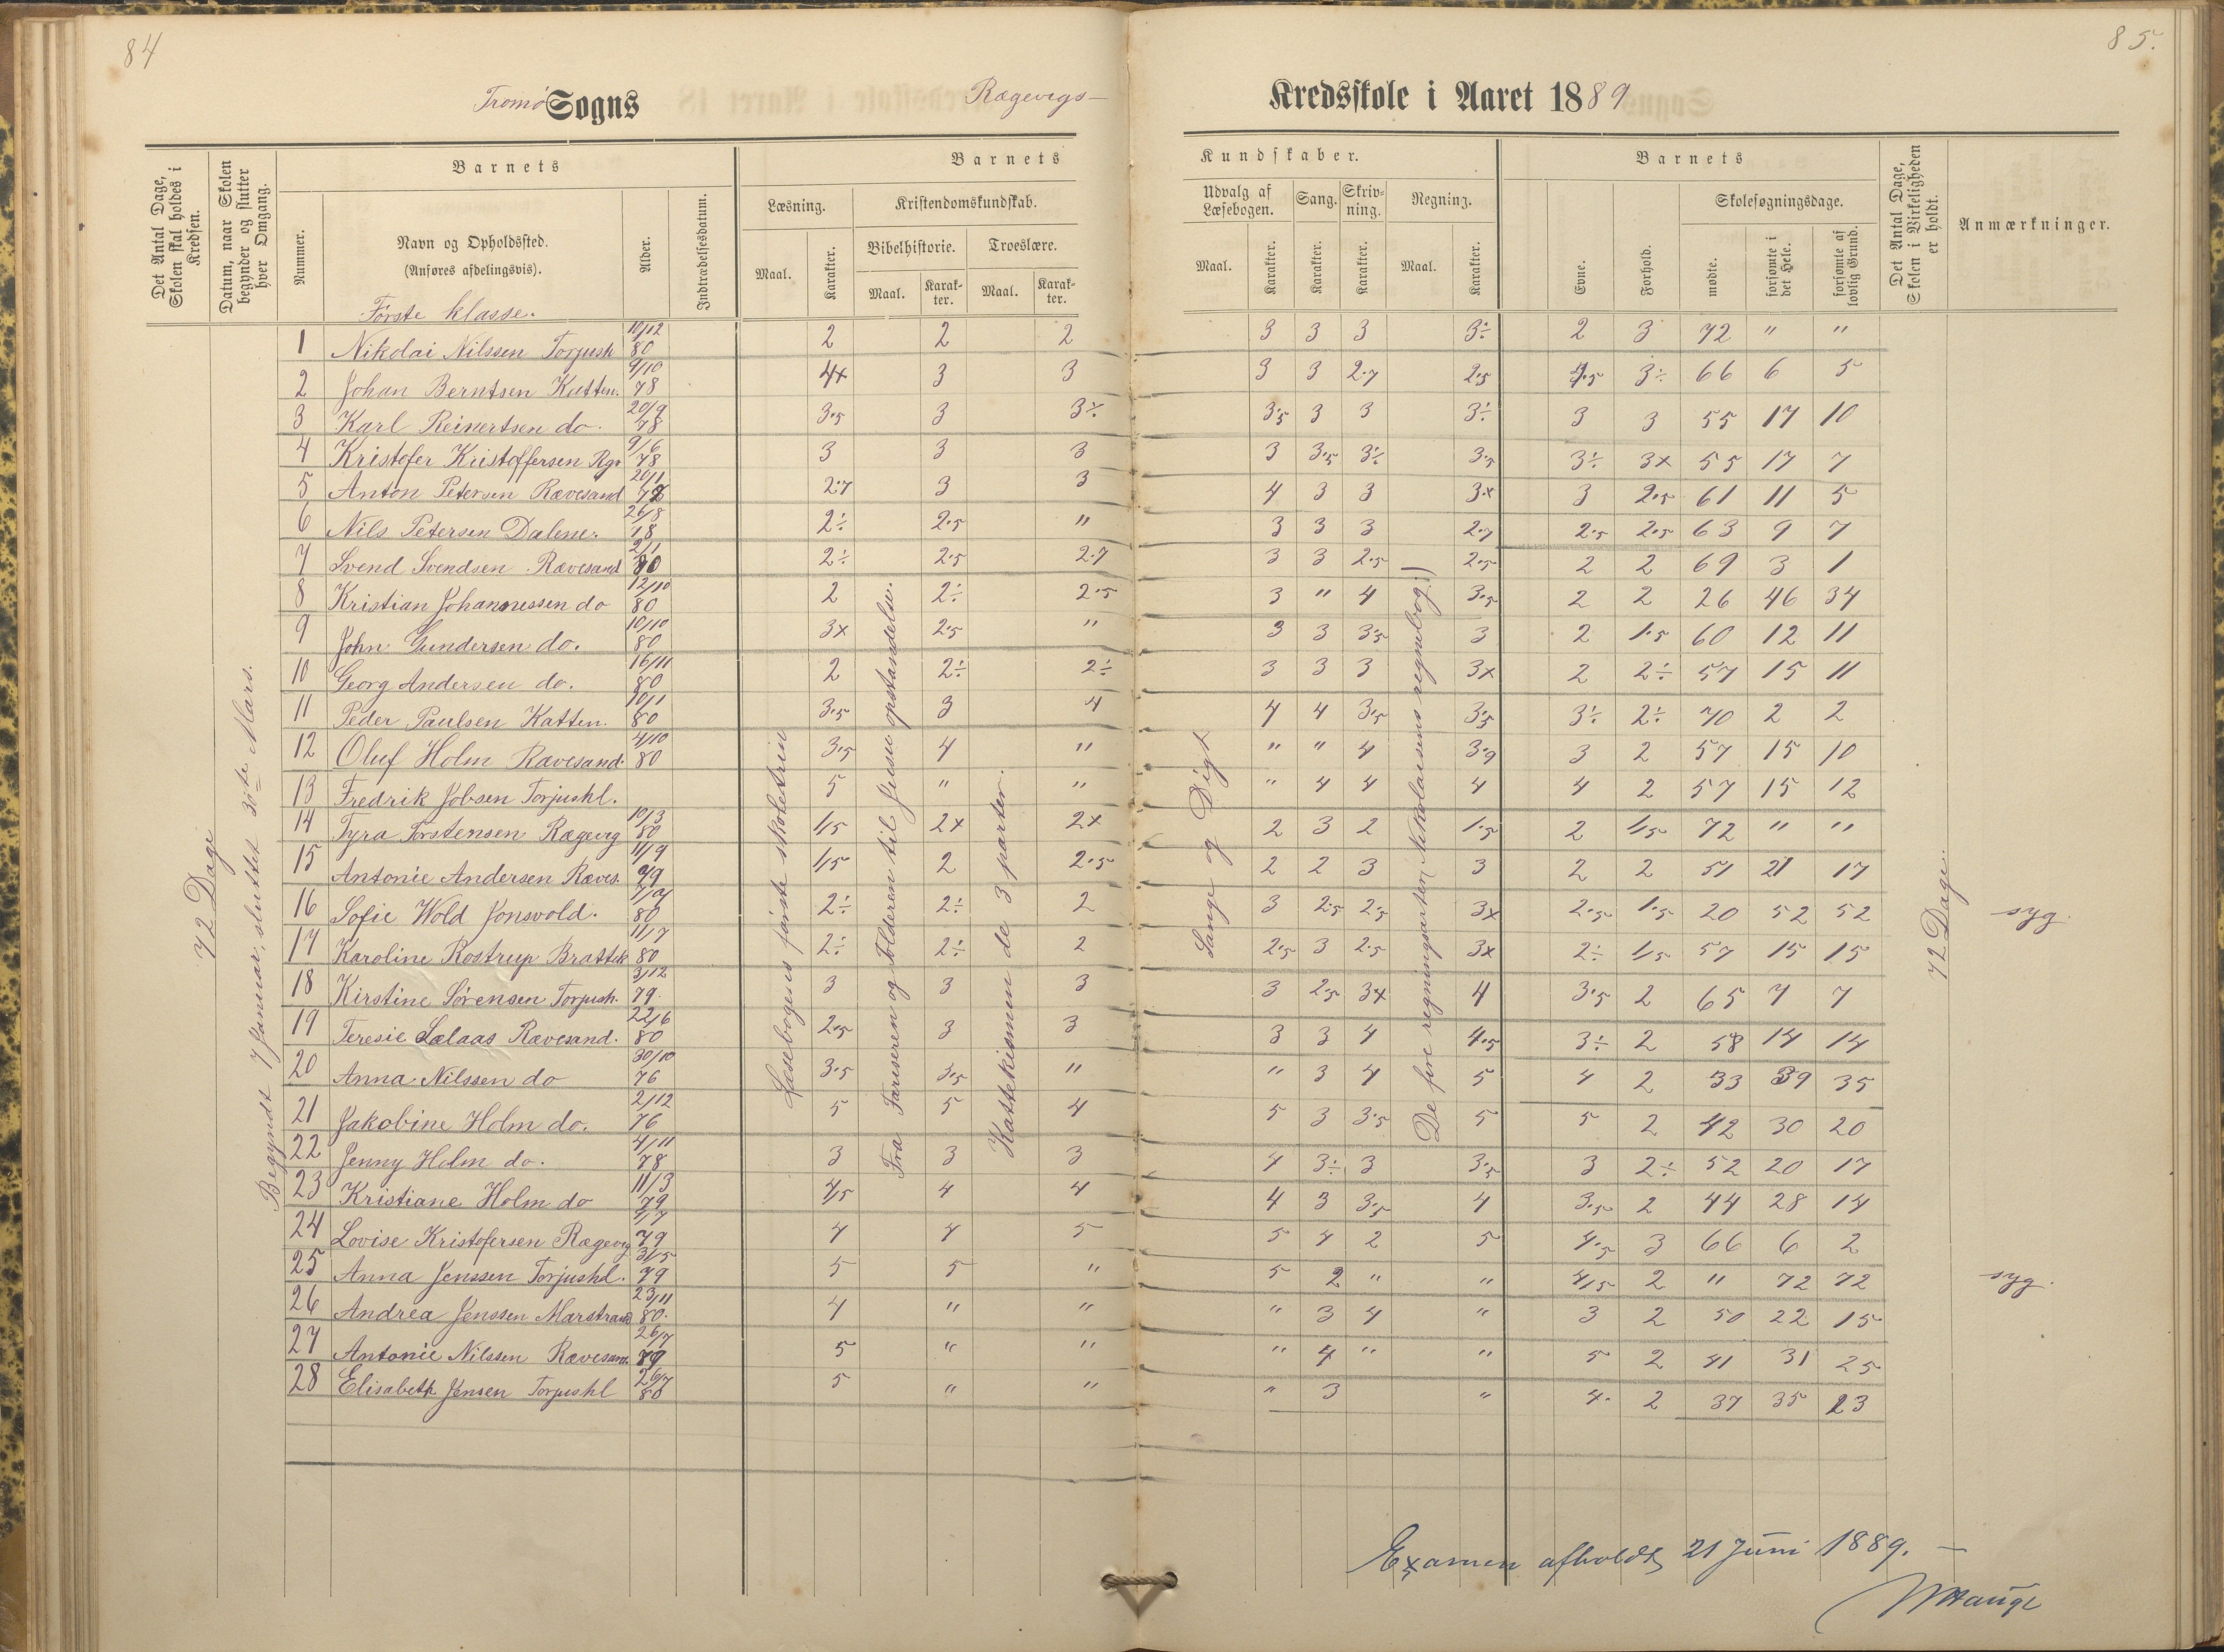 84
85.
Tromø Sogns Rægevigs- Kredsskole i Aaret 1889
Det Antal Dage, Skolen skal holdes i Kredsen.
Datum, naar Skolen begynder og slutter hver Omgang.
Nummer.
Barnets
Navn og Opholdssted.
(Anføres afdelingsvis).
Alder.
Indtrædelsesdatum.
Barnets Kundskaber.
Læsning.
Maal.
Karakter.
Kristendomskundskab.
Bibelhistorie.
Maal.
Karakter.
Troeslære.
Maal.
Karakter.
Udvalg af Læsebogen.
Maal.
Karakter.
Sang.
Karakter.
Skrivning.
Karakter.
Regning.
Maal.
Karakter.
Barnets
Evne.
Forhold.
Skolesøgningsdage.
mødte.
forsømte i det Hele.
forsømte af lovlig Grund.
Det Antal Dage, Skolen i Virkeligheden er holdt.
Anmærkninger.
Første klasse.
72 Dage
Begyndt 7 Januar, sluttet 30te Mars.
Læsebogens første skoletrin
Fra Fariseren og Tolderen til Jesu opstandelse.
Kattekismen de 3 parter.
Sange og Digt
De fire regningsarter (Nikolaisens regnebog.)
72 Dage.
1 Nikolai Nilssen Torjush 10/12 80 2 2 2 3 3 3 3÷ 2 3 72 " "
2 Johan Berntsen Katten. 9/10 78 4x 3 3 3 3 2.7 2.5 4.5 3÷ 66 6 5
3 Karl Reinertsen do. 20/9 78 3.5 3 3÷ 3.5 3 3 3÷ 3 3 55 17 10
4 Kristofer Kristoffersen Rgv 9/6 78 3 3 3 3 3.5 3÷ 3.5 3÷ 3x 55 17 7
5 Anton Petersen Rævesand 20/11 78 2.7 3 3 4 3 3 3.x 3 2.5 61 11 5
6 Nils Petersen Dalene. 26/8 78 2÷ 2.5 " 3 3 3 2.7 2.5 2.5 63 9 7
7 Svend Svendsen Rævesand 2/1 80 2÷ 2.5 2.7 3 3 2.5 2.5 2 2 69 3 1
8 Kristian Johannessen do 12/10 80 2 2÷ 2.5 3 " 4 3.5 2 2 26 46 34
9 John Gundersen do. 10/10 80 3x 2.5 " 3 3 3.5 3 2 1.5 60 12 11
10 Georg Andersen do. 16/11 80 2 2÷ 2÷ 3 3 3 3x 2 2÷ 57 15 11
11 Peder Paulsen Katten. 10/1 80 3.5 3 4 4 4 3.5 3.5 3÷ 2÷ 70 2 2
12 Oluf Holm Rævesand. 4/10 80 3.5 4 " " " 4 3.9 3 2 57 15 10
13 Fredrik Jobsen Torjushl. 5 " " " 4 4 4 4 2 57 15 12
14 Tyra Torstensen Rægevig 10/3 80 1/5 2x 2x 2 3 2 1.5 2 1/5 72 " "
15 Antonie Andersen Ræves. 11/9 79 1/5 2 2.5 2 2 3 3 2 2 51 21 17
16 Sofie Wold Jonsvold. 80 2÷ 2÷ 2 3 2.5 2.5 3x 2.5 1.5 20 52 52 syg.
17 Karoline Rostrup Brattek 11/7 80 2÷ 2÷ 2 2.5 3 2.5 3x 2÷ 1/5 57 15 15
18 Kirstine Sørensen Torjush. 3/12 79. 3 3 3 3 2.5 3x 4 3.5 2 65 7 7
19 Teresie Sælaas Rævesand. 22/6 80 2.5 3 3 3 3 4 4.5 3÷ 2 58 14 14
20 Anna Nilssen do 30/10 76 3.5 3.5 " " 3 4 5 4 2 33 39 35
21 Jakobine Holm do. 2/12 76 5 5 4 5 3 3.5 5 5 2 42 30 20
22 Jenny Holm do. 4/11 78 3 3 3 4 3÷ 3 3.5 3 2÷ 52 20 17
23 Kristiane Holm do 11/3 79 4/5 4 4 4 3 3.5 4 3.5 2 44 28 14
24 Lovise Kristofersen Rægevig 4/7 79 4 4 5 5 4 2 5 4.5 3 66 6 2
25 Anna Jenssen Torjushl. 31/5 79 5 5 " 5 2 " " 4/5 2 " 72 72 syg.
26 Andrea Jenssen Marstrand 23/11 80. 4 " " " 3 4 " 3 2 50 22 15
27 Antonie Nilssen Rævesand. 26/7 79 5 " " " 4 " " 5 2 41 31 25
28 Elisabeth Jensen Torjushl 26/7 80 5 " " " 3 " 4. 2 37 35 23
Examen afholdt 21 Juni 1889. -
Hauge